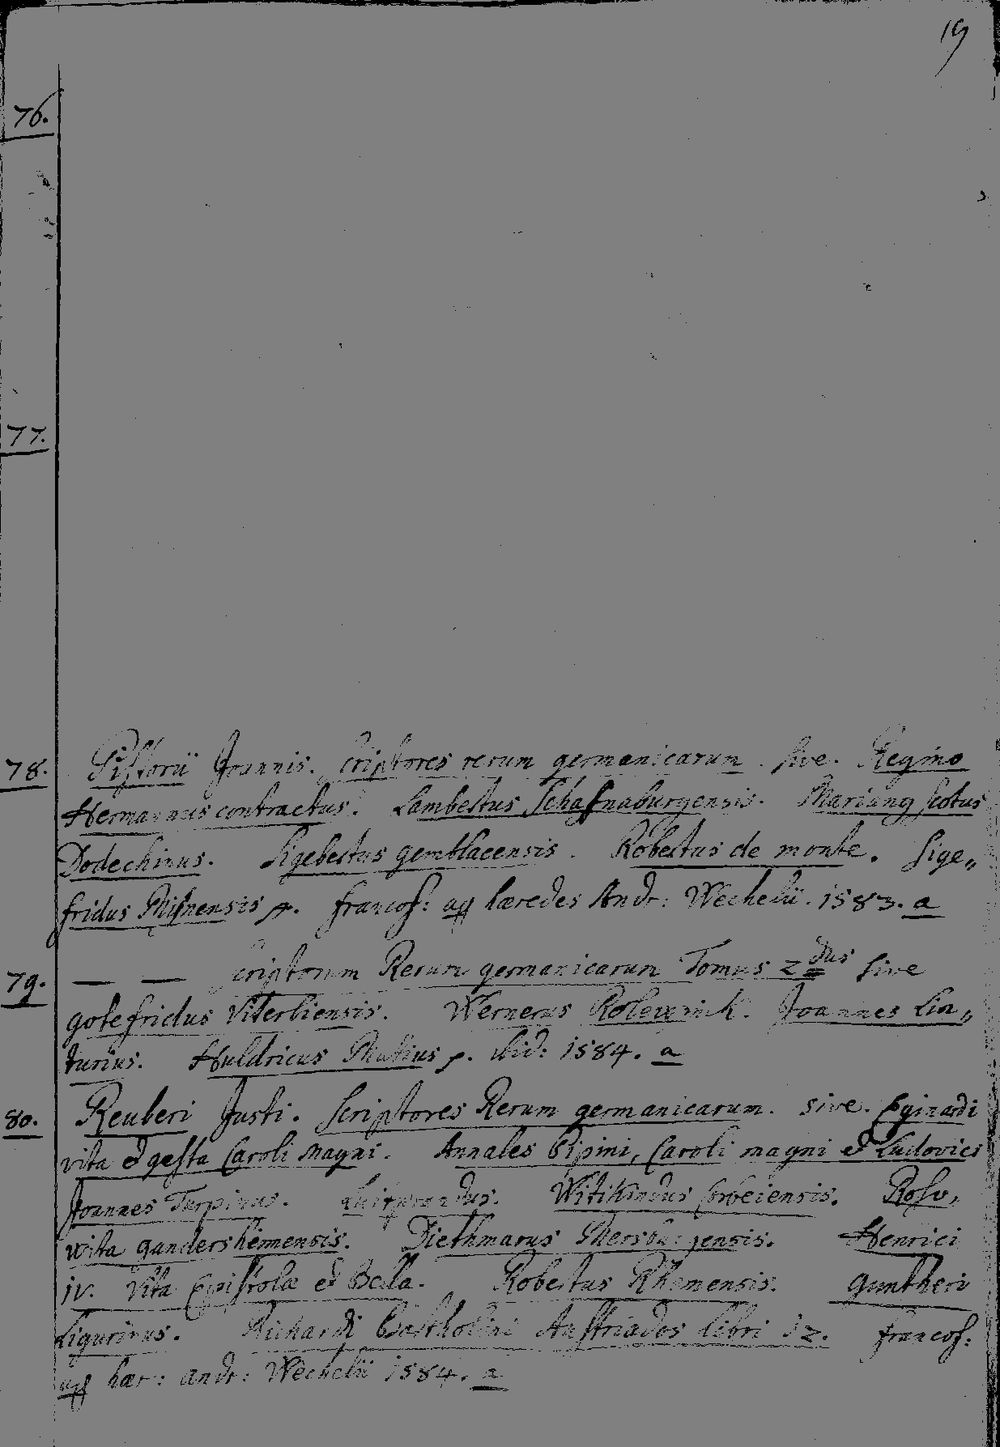 19
76.
77.
78. Pistorii Joannis. Scriptores rerum germanicarum. sive. Regino
Hermannus contractus. Lambertus Schafnaburgensis. Marianus Scotus
Dodechinus. Sigebertus gemblacensis. Robertus de monte. Sige„
fridus Misnensis p. francof: app hæredes Andr: Wechelii. 1583. a
79. — — Scriptorum Rerum germanicarum Tomus 2dus sive
gotefridus Viterbiensis. Wernerus Rolewink. Joannes Lin„
turius. Huldricus Mutius p. ibid: 1584. a
80. Reuberi Justi. Scriptores Rerum germanicarum. sive. Eginardi
vita et gesta Caroli magni. Annales Pipini, Caroli magni et Ludovici
Joannes Turpinus. Luitprandus. Witikindus Corbeiensis. Rosv,
vita gandershemensis. Diethmarus Mersburgensis. Henrici
iv. Vita Epistolæ et Bella. Robertus Rhemensis. guntheri
Ligurinus. Richardi Bartholini Austriados libri 12. francof:
app hær: andr: Wechelii 1584. a